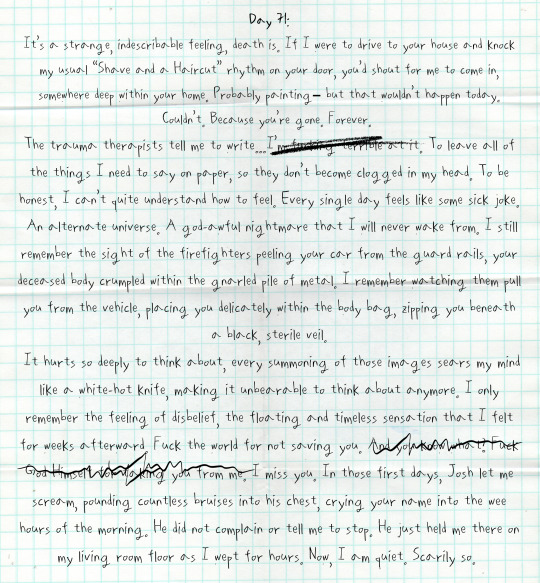 Day 71:
It's a strange, indescribable feeling, death is. If I were to drive to your house and knock
my usual "Shave and a Haircut" rhythm on your door, you'd shout for me to come in,
somewhere deep within your home. Probably painting – but that wouldn't happen today.
Couldn't. Because you're gone. Forever.
The trauma therapists tell me to write... I'm fucking terrible at it. To leave all of
the things I need to say on paper, so they don't become clogged in my head. To be
honest, I can't quite understand how to feel. Every single day feels like some sick joke.
An alternate universe. A god-awful nightmare that I will never wake from. I still
remember the sight of the firefighters peeling your car from the guard rails, your
deceased body crumpled within the gnarled pile of metal. I remember watching them pull
you from the vehicle, placing you delicately within the body bag, zipping you beneath
a black, sterile veil.
It hurts so deeply to think about, every summoning of those images sears my mind
like a white-hot knife, making it unbearable to think about anymore. I only
remember the feeling of disbelief, the floating and timeless sensation that I felt
for weeks afterward. Fuck the world for not saving you. And you know what? Fuck
God Himself for taking you from me. I miss you. In those first days, Josh let me
scream, pounding countless bruises into his chest, crying your name into the wee
hours of the morning. He did not complain or tell me to stop. He just held me there on
my living room floor as I wept for hours. Now, I am quiet. Scarily so.